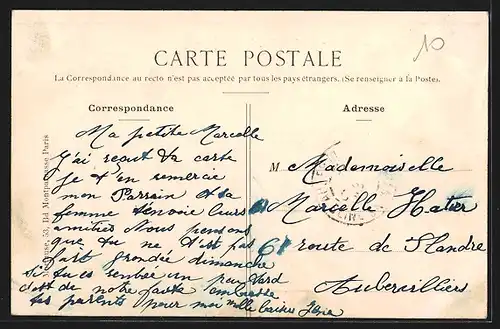 10
CARTE POSTALE
La Correspondance au recto n'est pas acceptée par tous les pays étrangers. (Se renseigner à la Poste).
Correspondance
Ma petite Marcelle
J'ai reçut ta carte
Je t'en remercie
mon Parrain et sa
femme tenvoie leurs
amitiés Nous pensons
que tu ne t'est pas
fait grondée dimanche
si tu es rentrée un peu tard
c'est de notre faute embrasse
tes parents pour moi mille baises
Adresse
M Mademoiselle
Marcelle Hatier
61 route de St Landre
Aubervilliers
53, Bd Montparnasse Paris